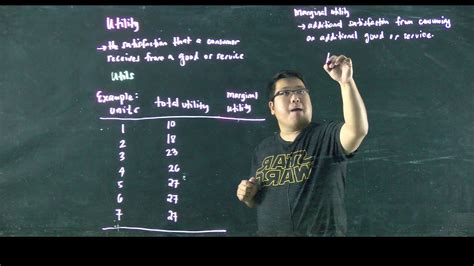 Utility
→ the satisfaction that a consumer
receives from a good or service
Utils
Example:
units
total utility
marginal
utility
1 10
2 18
3 23
4 26
5 27
6 27
7 27
Marginal utility
→ additional satisfaction from consuming
an additional good or service.
STAR
WARS